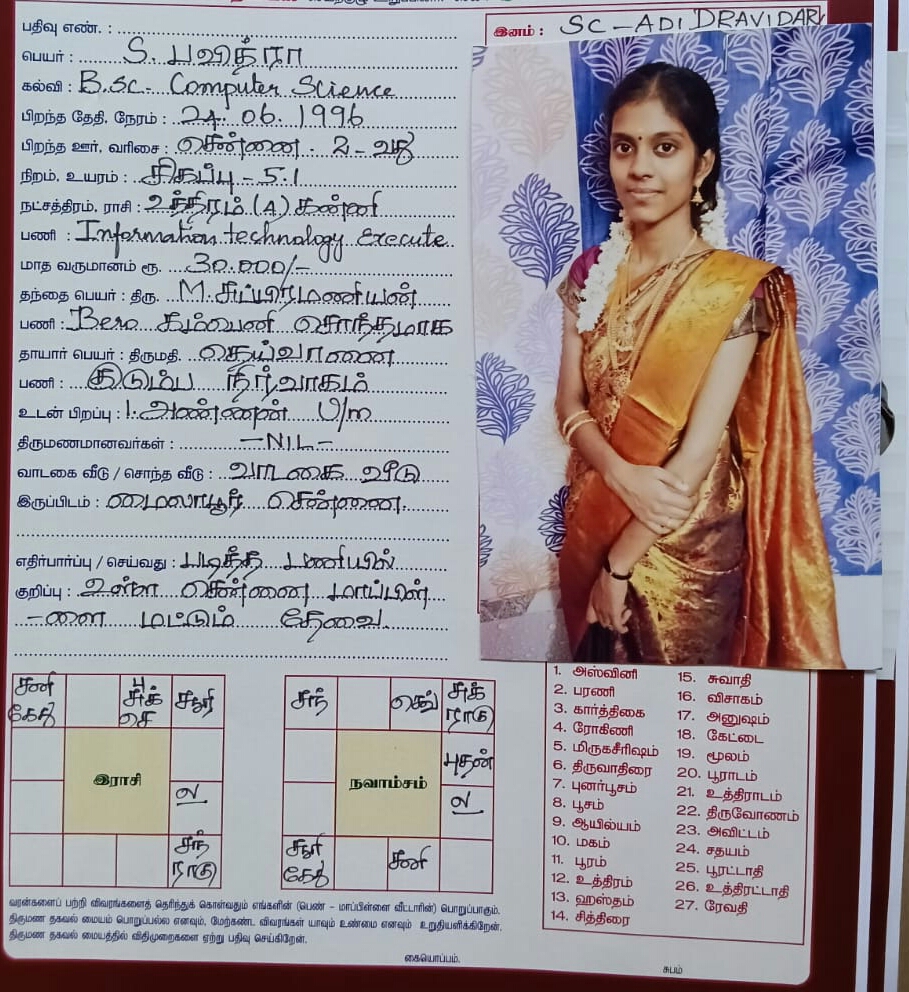 இனம் : SC - ADI DRAVIDAR
பதிவு எண். :
பெயர் : S. பவித்ரா
கல்வி : B.sc - Computer Science
பிறந்த தேதி, நேரம் : 24. 06. 1996
பிறந்த ஊர், வரிசை : சென்னை - 2 - வது
நிறம், உயரம் : சிகப்பு - 5.1
நட்சத்திரம், ராசி : உத்திரம் (4) கன்னி
பணி : Information technology Execute
மாத வருமானம் ரூ. 30.000/-
தந்தை பெயர் : திரு. M. சுப்பிரமணியன்
பணி : Bero கம்பெனி சொந்தமாக
தாயார் பெயர் : திருமதி. தெய்வானை
பணி : குடும்ப நிர்வாகம்
உடன் பிறப்பு : 1. அண்ணன் U/m
திருமணமானவர்கள் : - NIL -
வாடகை வீடு / சொந்த வீடு : வாடகை வீடு
இருப்பிடம் : மைலாப்பூர் சென்னை.
எதிர்பார்ப்பு / செய்வது : படித்த பணியில்
குறிப்பு : உள்ள சென்னை மாப்பிள்
- ளை மட்டும் தேவை.
சனி கேது
பு சுக் செ
சூரி
இராசி
ல
சந் ராகு
சந்
செவ்
சுக் ராகு
புதன்
நவாம்சம்
ல
சூரி கேது
சனி
1. அஸ்வினி
2. பரணி
3. கார்த்திகை
4. ரோகிணி
5. மிருகசீரிஷம்
6. திருவாதிரை
7. புனர்பூசம்
8. பூசம்
9. ஆயில்யம்
10. மகம்
11. பூரம்
12. உத்திரம்
13. ஹஸ்தம்
14. சித்திரை
15. சுவாதி
16. விசாகம்
17. அனுஷம்
18. கேட்டை
19. மூலம்
20. பூராடம்
21. உத்திராடம்
22. திருவோணம்
23. அவிட்டம்
24. சதயம்
25. பூரட்டாதி
26. உத்திரட்டாதி
27. ரேவதி
வரன்களைப் பற்றி விவரங்களைத் தெரிந்துக் கொள்வதும் எங்களின் (பெண் - மாப்பிள்ளை வீட்டாரின்) பொறுப்பாகும்.
திருமண தகவல் மையம் பொறுப்பல்ல எனவும், மேற்கண்ட விவரங்கள் யாவும் உண்மை எனவும் உறுதியளிக்கிறேன்.
திருமண தகவல் மையத்தில் விதிமுறைகளை ஏற்று பதிவு செய்கிறேன்.
கையொப்பம்.
சுபம்